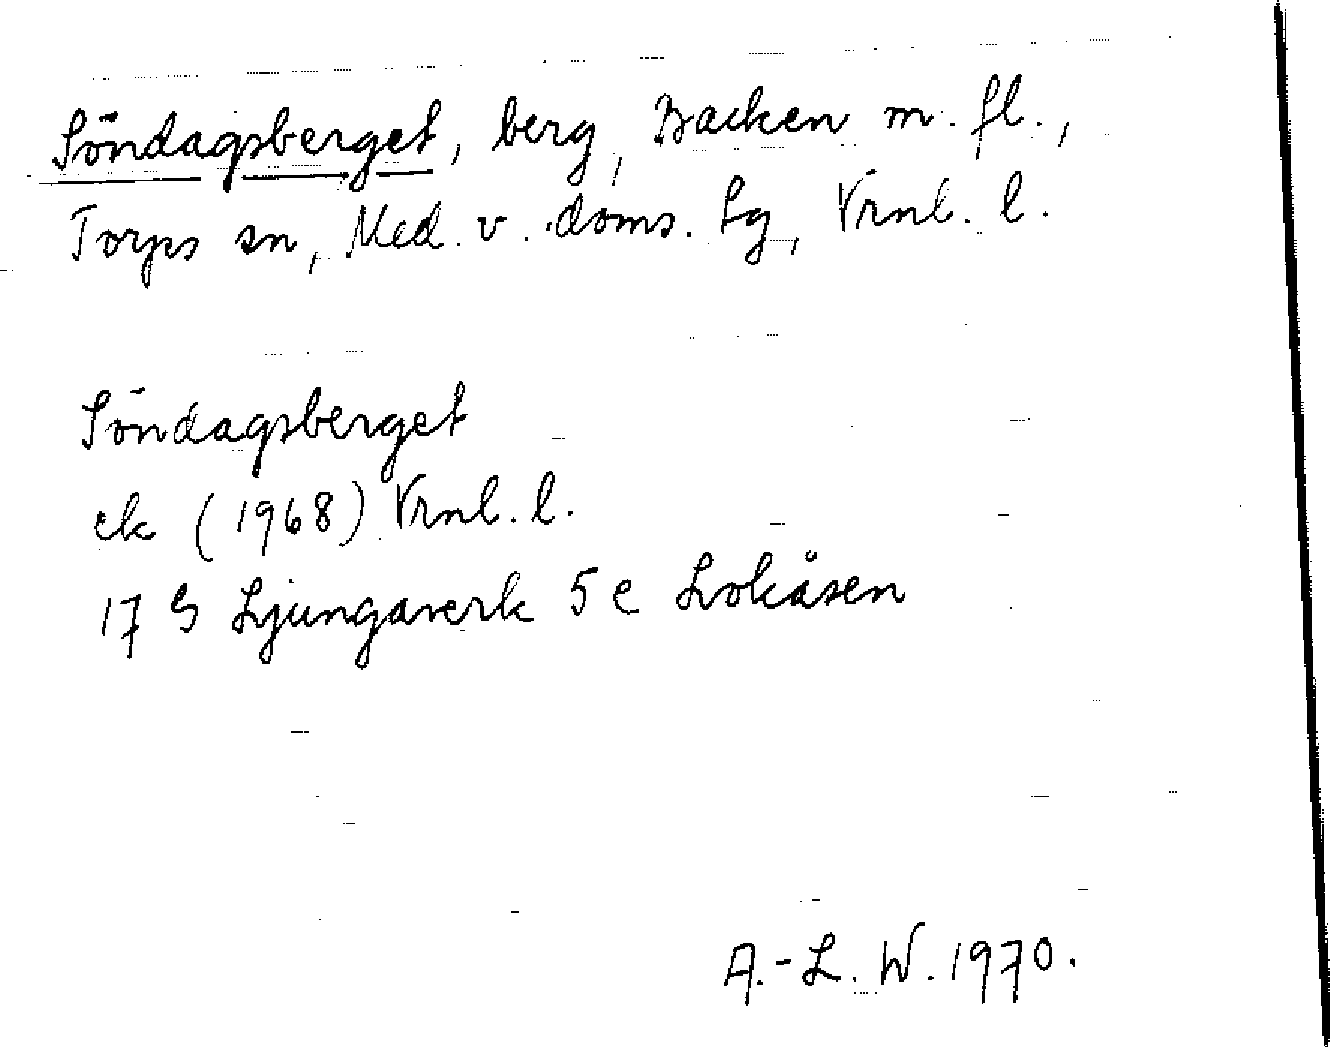 Söndagsberget, berg, Backen m. fl.,
Torps sn, Med. v. doms. lg, Vrnl. l.
Söndagsberget
ek (1968) Vrnl. l.
17 G Ljungaverk 5 e Lokåsen
A.-L. W. 1970.